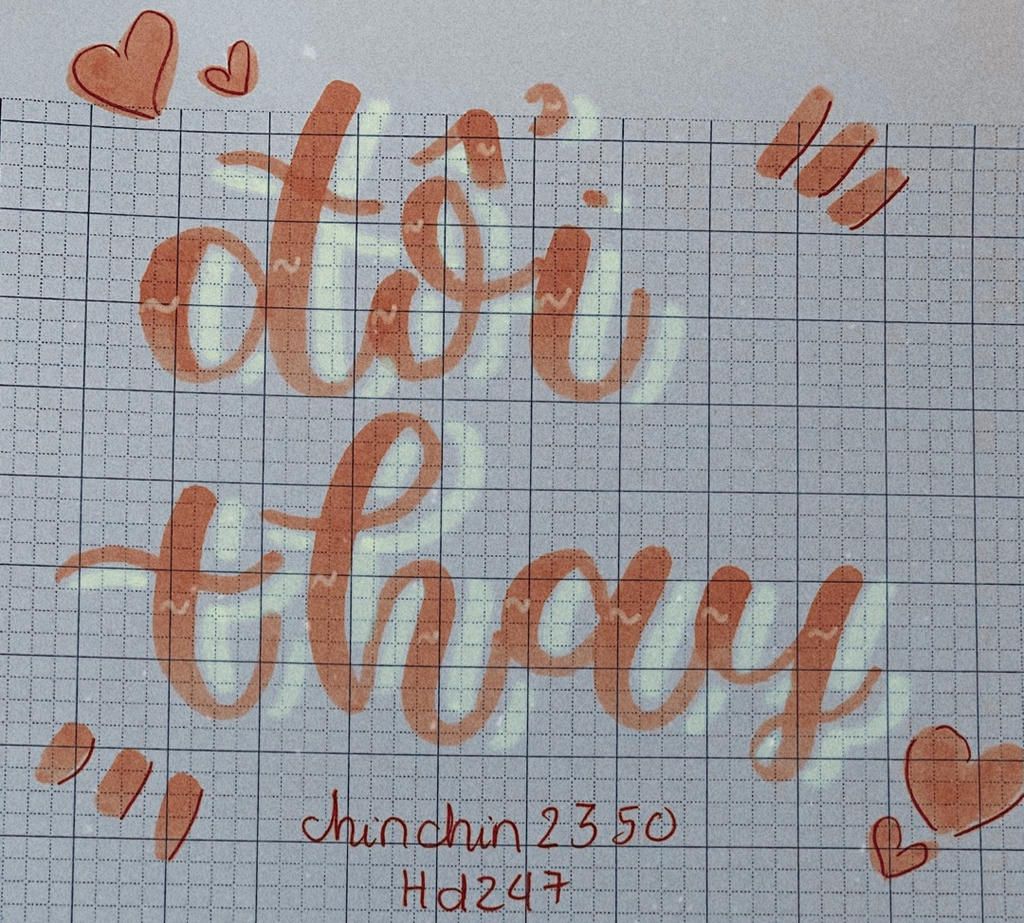 đổi
thay
chinchin2350
Hd247